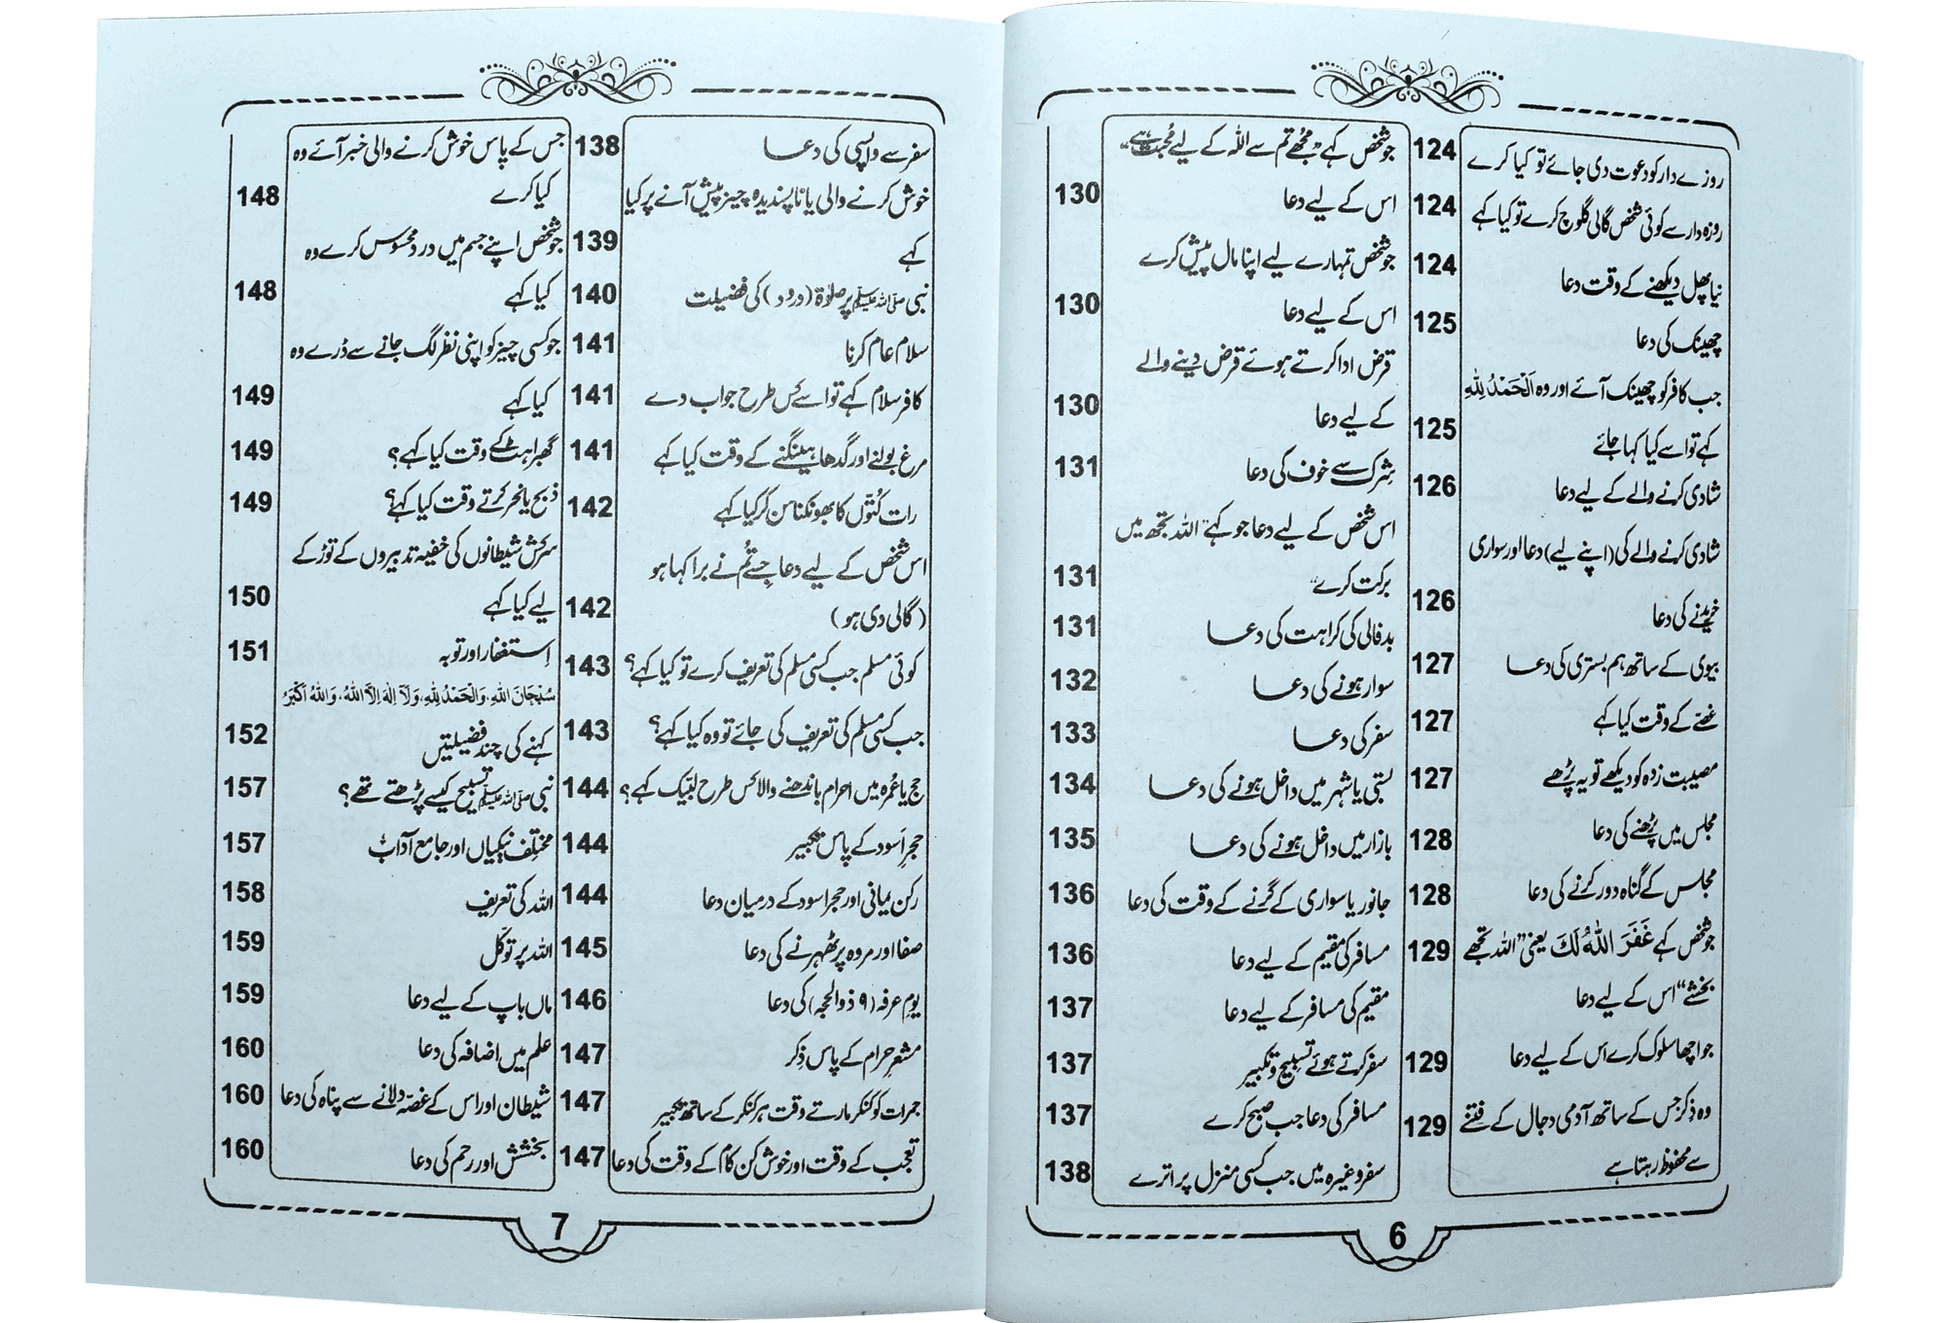 روزے دار کو دعوت دی جائے تو کیا کرے 124
روزہ دار سے کوئی شخص گالی گلوچ کرے تو کیا کہے 124
نیا پھل دیکھنے کے وقت دعا 124
چھینک کی دعا 125
جب کافر کو چھینک آئے اور وہ اَلْحَمْدُ لِلّٰهِ
کہے تو اسے کیا کہا جائے 125
شادی کرنے والے کے لیے دعا 126
شادی کرنے والے کی (اپنے لیے) دعا اور سواری
خریدنے کی دعا 126
بیوی کے ساتھ ہم بستری کی دعا 127
غصّے کے وقت کیا کہے 127
مصیبت زدہ کو دیکھے تو یہ پڑھے 127
مجلس میں پڑھنے کی دعا 128
مجلس کے گناہ دور کرنے کی دعا 128
جو شخص کہے غَفَرَ اللهُ لَكَ یعنی "اللہ تجھے 129
بخشے" اس کے لیے دعا
جو اچھا سلوک کرے اس کے لیے دعا 129
وہ ذکر جس کے ساتھ آدمی دجال کے فتنے 129
سے محفوظ رہتا ہے
جو شخص کہے "مجھے تم سے اللہ کے لیے مُحبت ہے"
اس کے لیے دعا 130
جو شخص تمہارے لیے اپنا مال پیش کرے
اس کے لیے دعا 130
قرض ادا کرتے ہوئے قرض دینے والے
کے لیے دعا 130
شرک سے خوف کی دعا 131
اس شخص کے لیے دعا جو کہے "اللہ تجھ میں
برکت کرے" 131
بدفالی کی کراہت کی دعا 131
سوار ہونے کی دعا 132
سفر کی دعا 133
بستی یا شہر میں داخل ہونے کی دعا 134
بازار میں داخل ہونے کی دعا 135
جانور یا سواری کے گرنے کے وقت کی دعا 136
مسافر کی مقیم کے لیے دعا 136
مقیم کی مسافر کے لیے دعا 137
سفر کرتے ہوئے تسبیح و تکبیر 137
مسافر کی دعا جب صبح کرے 137
سفر وغیرہ میں جب کسی منزل پر اترے 138
6
سفر سے واپسی کی دعا 138
خوش کرنے والی یا ناپسندیدہ چیز پیش آنے پر کیا
کہے 139
نبی صلی اللہ علیہ وسلم پر صلوٰۃ (درود) کی فضیلت 140
سلام عام کرنا 141
کافر سلام کہے تو اسے کس طرح جواب دے 141
مرغ بولنے اور گدھا ہینگنے کے وقت کیا کہے 141
رات کُتّوں کا بھونکنا سن کر کیا کہے 142
اس شخص کے لیے دعا جسے تُم نے برا کہا ہو
(گالی دی ہو) 142
کوئی مسلم جب کسی مسلم کی تعریف کرے تو کیا کہے؟ 143
جب کسی مسلم کی تعریف کی جائے تو وہ کیا کہے؟ 143
حج یا عُمرہ میں احرام باندھنے والا کس طرح لبّیک کہے؟ 144
حجرِ اَسود کے پاس تکبیر 144
رکن یمانی اور حجر اسود کے درمیان دعا 144
صفا اور مروہ پر ٹھہرنے کی دعا 145
یوم عرفہ (۹ ذوالحجہ) کی دعا 146
مشعرِ حرام کے پاس ذِکر 147
جمرات کو کنکر مارتے وقت ہر کنکر کے ساتھ تکبیر 147
تعجب کے وقت اور خوش کن کام کے وقت کی دعا 147
جس کے پاس خوش کرنے والی خبر آئے وہ
کیا کرے 148
جو شخص اپنے جسم میں درد محسوس کرے وہ
کیا کہے 148
جو کسی چیز کو اپنی نظر لگ جانے سے ڈرے وہ
کیا کہے 149
گھبراہٹ کے وقت کیا کہے؟ 149
ذبح یا نحر کرتے وقت کیا کہے؟ 149
سرکش شیطانوں کی خفیہ تدبیروں کے توڑ کے
لیے کیا کہے 150
اِستغفار اور توبہ 151
سُبْحَانَ اللهِ، وَالْحَمْدُ لِلّٰهِ، وَلَآ اِلٰهَ اِلَّا اللهُ، وَاللهُ اَكْبَرُ
کہنے کی چند فضیلتیں 152
نبی صلی اللہ علیہ وسلم تسبیح کیسے پڑھتے تھے؟ 157
مختلف نیکیاں اور جامع آداب 157
اللہ کی تعریف 158
اللہ پر توکّل 159
ماں باپ کے لیے دعا 159
علم میں اضافہ کی دعا 160
شیطان اور اس کے غصّہ دلانے سے پناہ کی دعا 160
بخشش اور رحم کی دعا 160
7